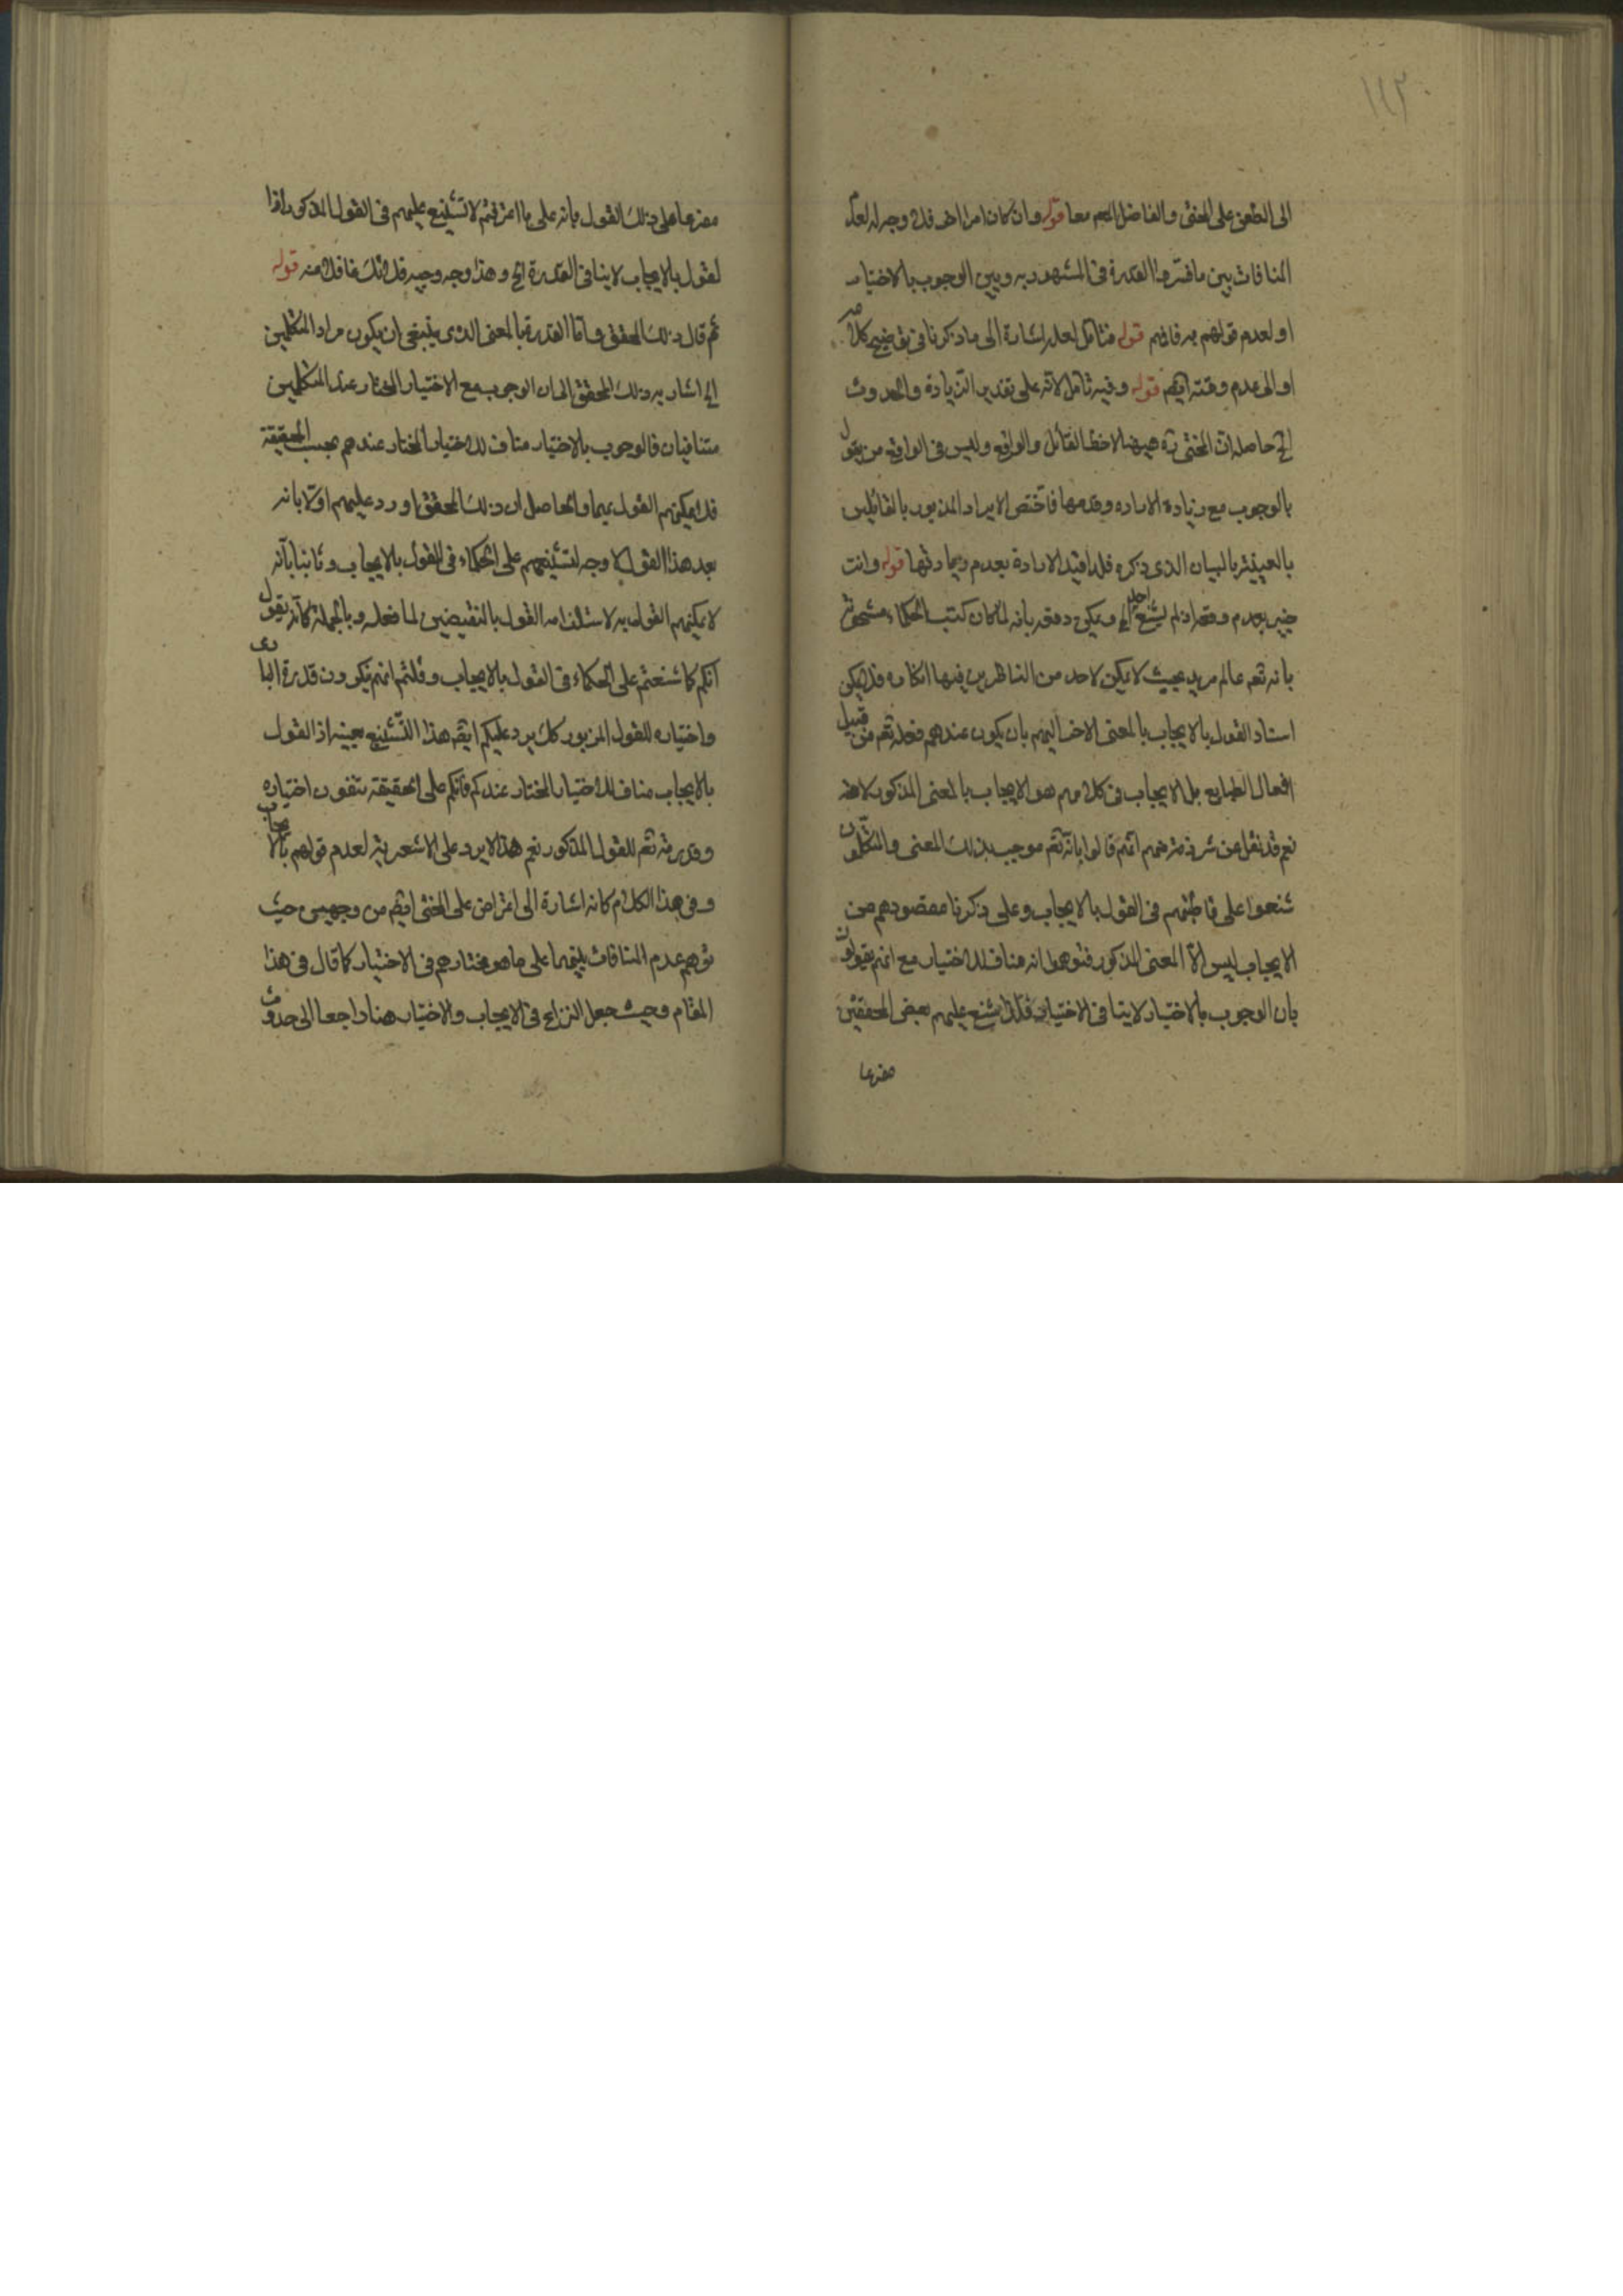 ١١٣
الى الطعن على المحشى والفاضل معا قوله وان كان امرا اخر فلا وجه له لعدم
المنافات بين ما فسر به القدرة فى المشهور به وبين الوجوب بالاختيار
او لعدم قولهم به فافهم قوله فتامل لعله اشارة الى ما ذكرنا فى توضيح كلامه
او الى عدم وقته ايضم قوله وفيه تامل لانه على تقدير الزيادة والحدوث
الخ حاصله ان المحشى ره هيهنا لاحظ القائل والواقع وليس فى الواقع من يقول
بالوجوب مع زيادة الاراده وقدمها فاختص الايراد المزبور بالقائلين
بالعينية بالبيان الذى ذكره فلذا قيد الارادة بعدم زيادتها قوله وانت
خبير بعدم وقعه اذ لم يشنع احد الخ ويمكن دفعه بانه لما كان كتب الحكماء مشحونة
بانه تعه عالم مريد بحيث لا يمكن لاحد من الناظرين فيها انكاره فلا يمكن
اسناد القول بالايجاب بالمعنى الاخر اليهم بان يكون عندهم فعله تعه من قبيل
افعال الطبايع بل الايجاب فى كلامهم هو الايجاب بالمعنى المذكور لا غير
نعم قد نقل عن شرذمة منهم انهم قالوا بانه تعه موجب بذلك المعنى والمتكلمون
شنعوا على قاطبتهم فى القول بالايجاب وعلى ذكرنا مقصودهم من
الايجاب ليس الا المعنى المذكور فتوهموا انه مناف للاختيار مع انهم يقولون
بان الوجوب بالاختيار لا ينافى الاختيار فلذا شنع عليهم بعض المحققين
مفرعا
مفرعا على ذلك القول بانه على ما اعترفتم لا تشنيع عليهم فى القول المذكور اذا
لقول بالايجاب لا ينافى القدرة الخ وهذا وجه وجيه فلا تك غافلا منه قوله
ثم قال ذلك المحقق واما القدرة بالمعنى الذى ينبغى ان يكون مراد المتكلمين
الخ اشار به ذلك المحقق الى ان الوجوب مع الاختيار المختار عند المتكلمين
متنافيان فالوجوب بالاختيار مناف للاختيار المختار عندهم بحسب الحقيقة
فلا يمكنهم القول بهما والحاصل ان ذلك المحقق اورد عليهم اولا بانه
بعد هذا القول لا وجه لتشنيعهم على الحكماء فى القول بالايجاب وثانيا بانه
لا يمكنهم القول به لاستلزامه القول بالنقيضين لما فعله وبالجملة كانه يقول
انكم كما شنعتم على الحكماء فى القول بالايجاب وقلتم انهم ينكرون قدرة البارى
واختياره للقول المزبور كك يرد عليكم ايضم هذا التشنيع بعينه اذ القول
بالايجاب مناف للاختيار المختار عندكم فانكم على الحقيقة تنفون اختياره
وقدرته تعه للقول المذكور نعم هذا لا يرد على الاشعرية لعدم قولهم بالايجاب
وفى هذا الكلام كانه اشارة الى اعتراض على المحشى ايضم من وجهين حيث
توهم عدم المنافات بينهما على ما هو مختارهم فى الاختيار كما قال فى هذا
المقام وحيث جعل النزاع فى الايجاب والاختيار هنا راجعا الى حدوث